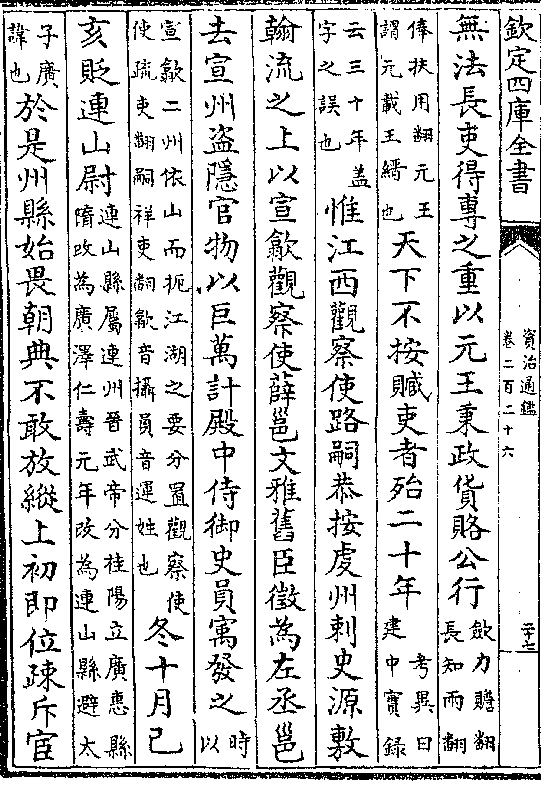 欽定四庫全書
資治通鑑
卷二百二十六
二十七
無法長吏得專之重以元王秉政貨賂公行歛力贍翻長知兩翻
俸扶用翻元王謂元載王縉也天下不按贓吏者殆二十年考異曰建中實錄
云三十年蓋字之誤也惟江西觀察使路嗣恭按虔州刺史源敷
翰流之上以宣歙觀察使薛邕文雅舊臣徵為左丞邕
去宣州盜隱官物以巨萬計殿中侍御史員㝢發之時以
宣歙二州依山而扼江湖之要分置觀察使使疏吏翻嗣祥吏翻歙音攝員音運姓也冬十月己
亥貶連山尉連山縣屬連州晉武帝分桂陽立廣惠縣隋改為廣澤仁壽元年改為連山縣避太
子廣諱也於是州縣始畏朝典不敢放縱上初即位疎斥宦